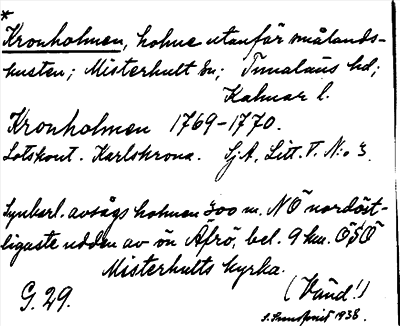 *
Kronholmen, holme utanför smålands-
kusten; Misterhult sn; Tunaläns hd;
Kalmar l.
Kronholmen 1769-1770.
Lotskont. Karlskrona. SjA, Litt. T. N:o 3.
Synbarl. avsägs holmen 300 m. NÖ nordöst-
ligaste udden av ön Äfrö, bel. 9 km. ÖSÖ
Misterhults kyrka.
G. 29. (Vänd!)
1938